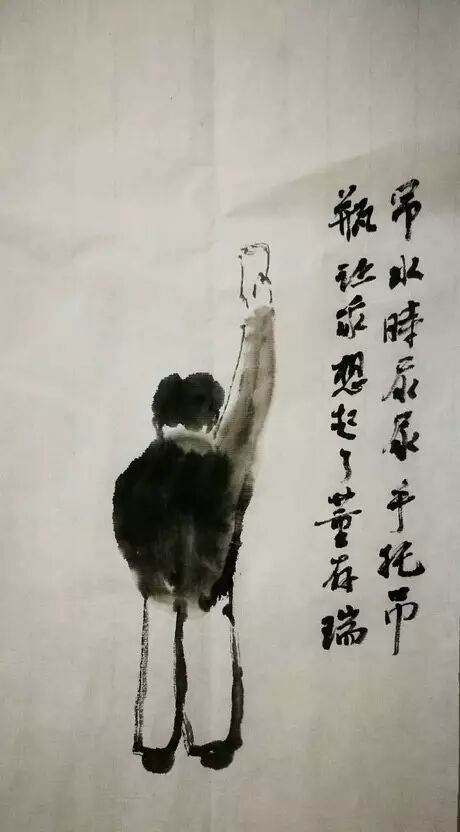 吊水時尿尿手托吊
瓶让我想起了董存瑞